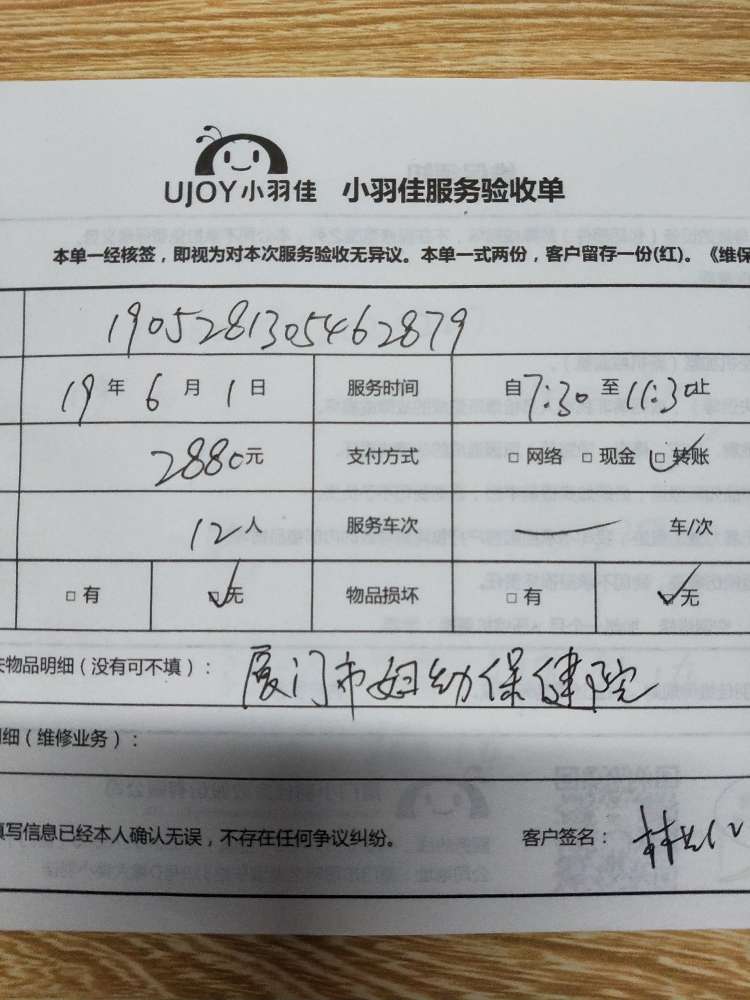 UJOY小羽佳 小羽佳服务验收单
本单一经核签，即视为对本次服务验收无异议。本单一式两份，客户留存一份(红)。《维保
1905281305462879
19年6月1日 服务时间 自7:30至11:30止
2880元 支付方式 □ 网络 □ 现金 ☑ 转账
12人 服务车次 — 车/次
□ 有 ☑ 无 物品损坏 □ 有 ☑ 无
物品明细（没有可不填）： 厦门市妇幼保健院
细（维修业务）：
填写信息已经本人确认无误，不存在任何争议纠纷。 客户签名： 林